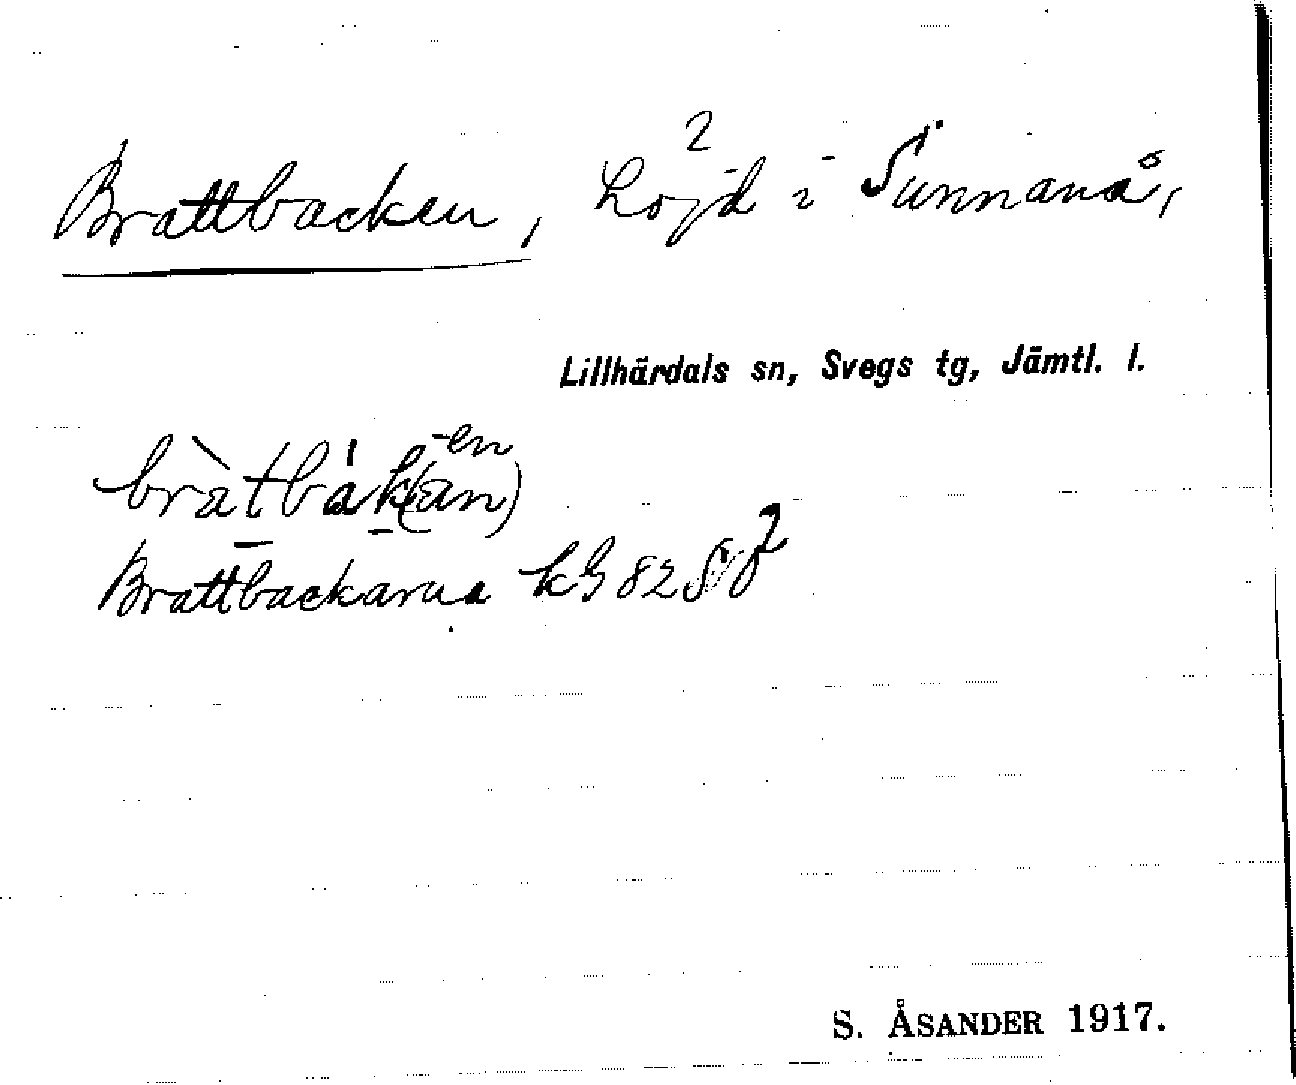 Brattbacken, höjd² i Sunnanå,
Lillhärdals sn, Svegs tg, Jämtl. l.
-en
bràtbák(an)
Brattbackarna kG 82 SV²
S. ÅSANDER 1917.